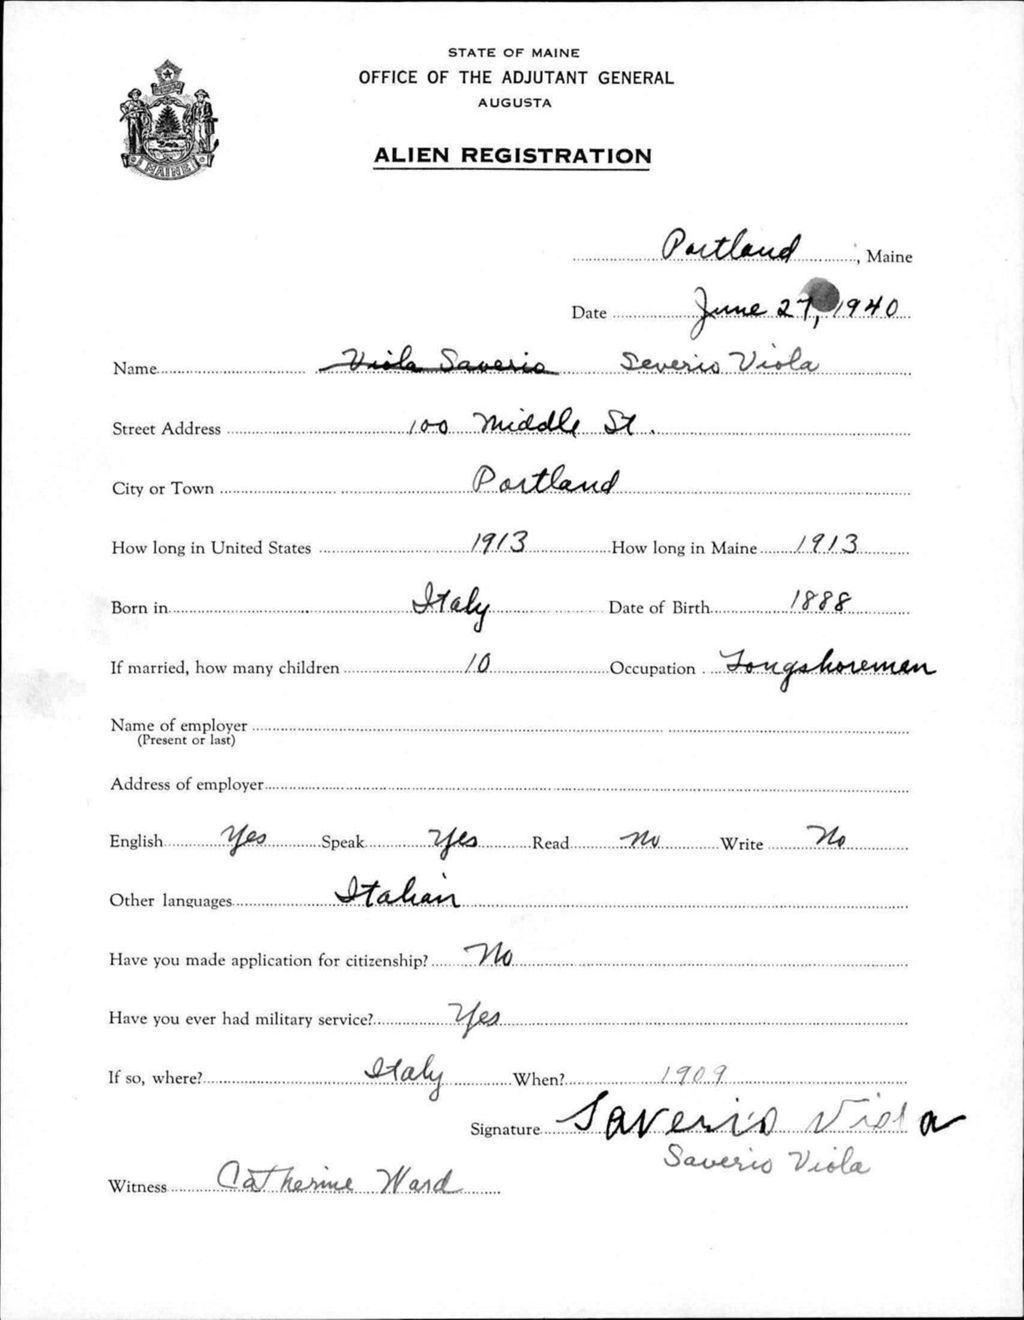 STATE OF MAINE
OFFICE OF THE ADJUTANT GENERAL
AUGUSTA
ALIEN REGISTRATION
MAINE
Portland, Maine
Date June 27, 1940
Name Viola Saverio Severio Viola
Street Address 100 Middle St.
City or Town Portland
How long in United States 1913 How long in Maine 1913
Born in Italy Date of Birth 1888
If married, how many children 10 Occupation Longshoreman
Name of employer
(Present or last)
Address of employer
English Yes Speak Yes Read No Write No
Other languages Italian
Have you made application for citizenship? No
Have you ever had military service? Yes
If so, where? Italy When? 1909
Signature Saverio Viola
Saverio Viola
Witness Catherine Ward